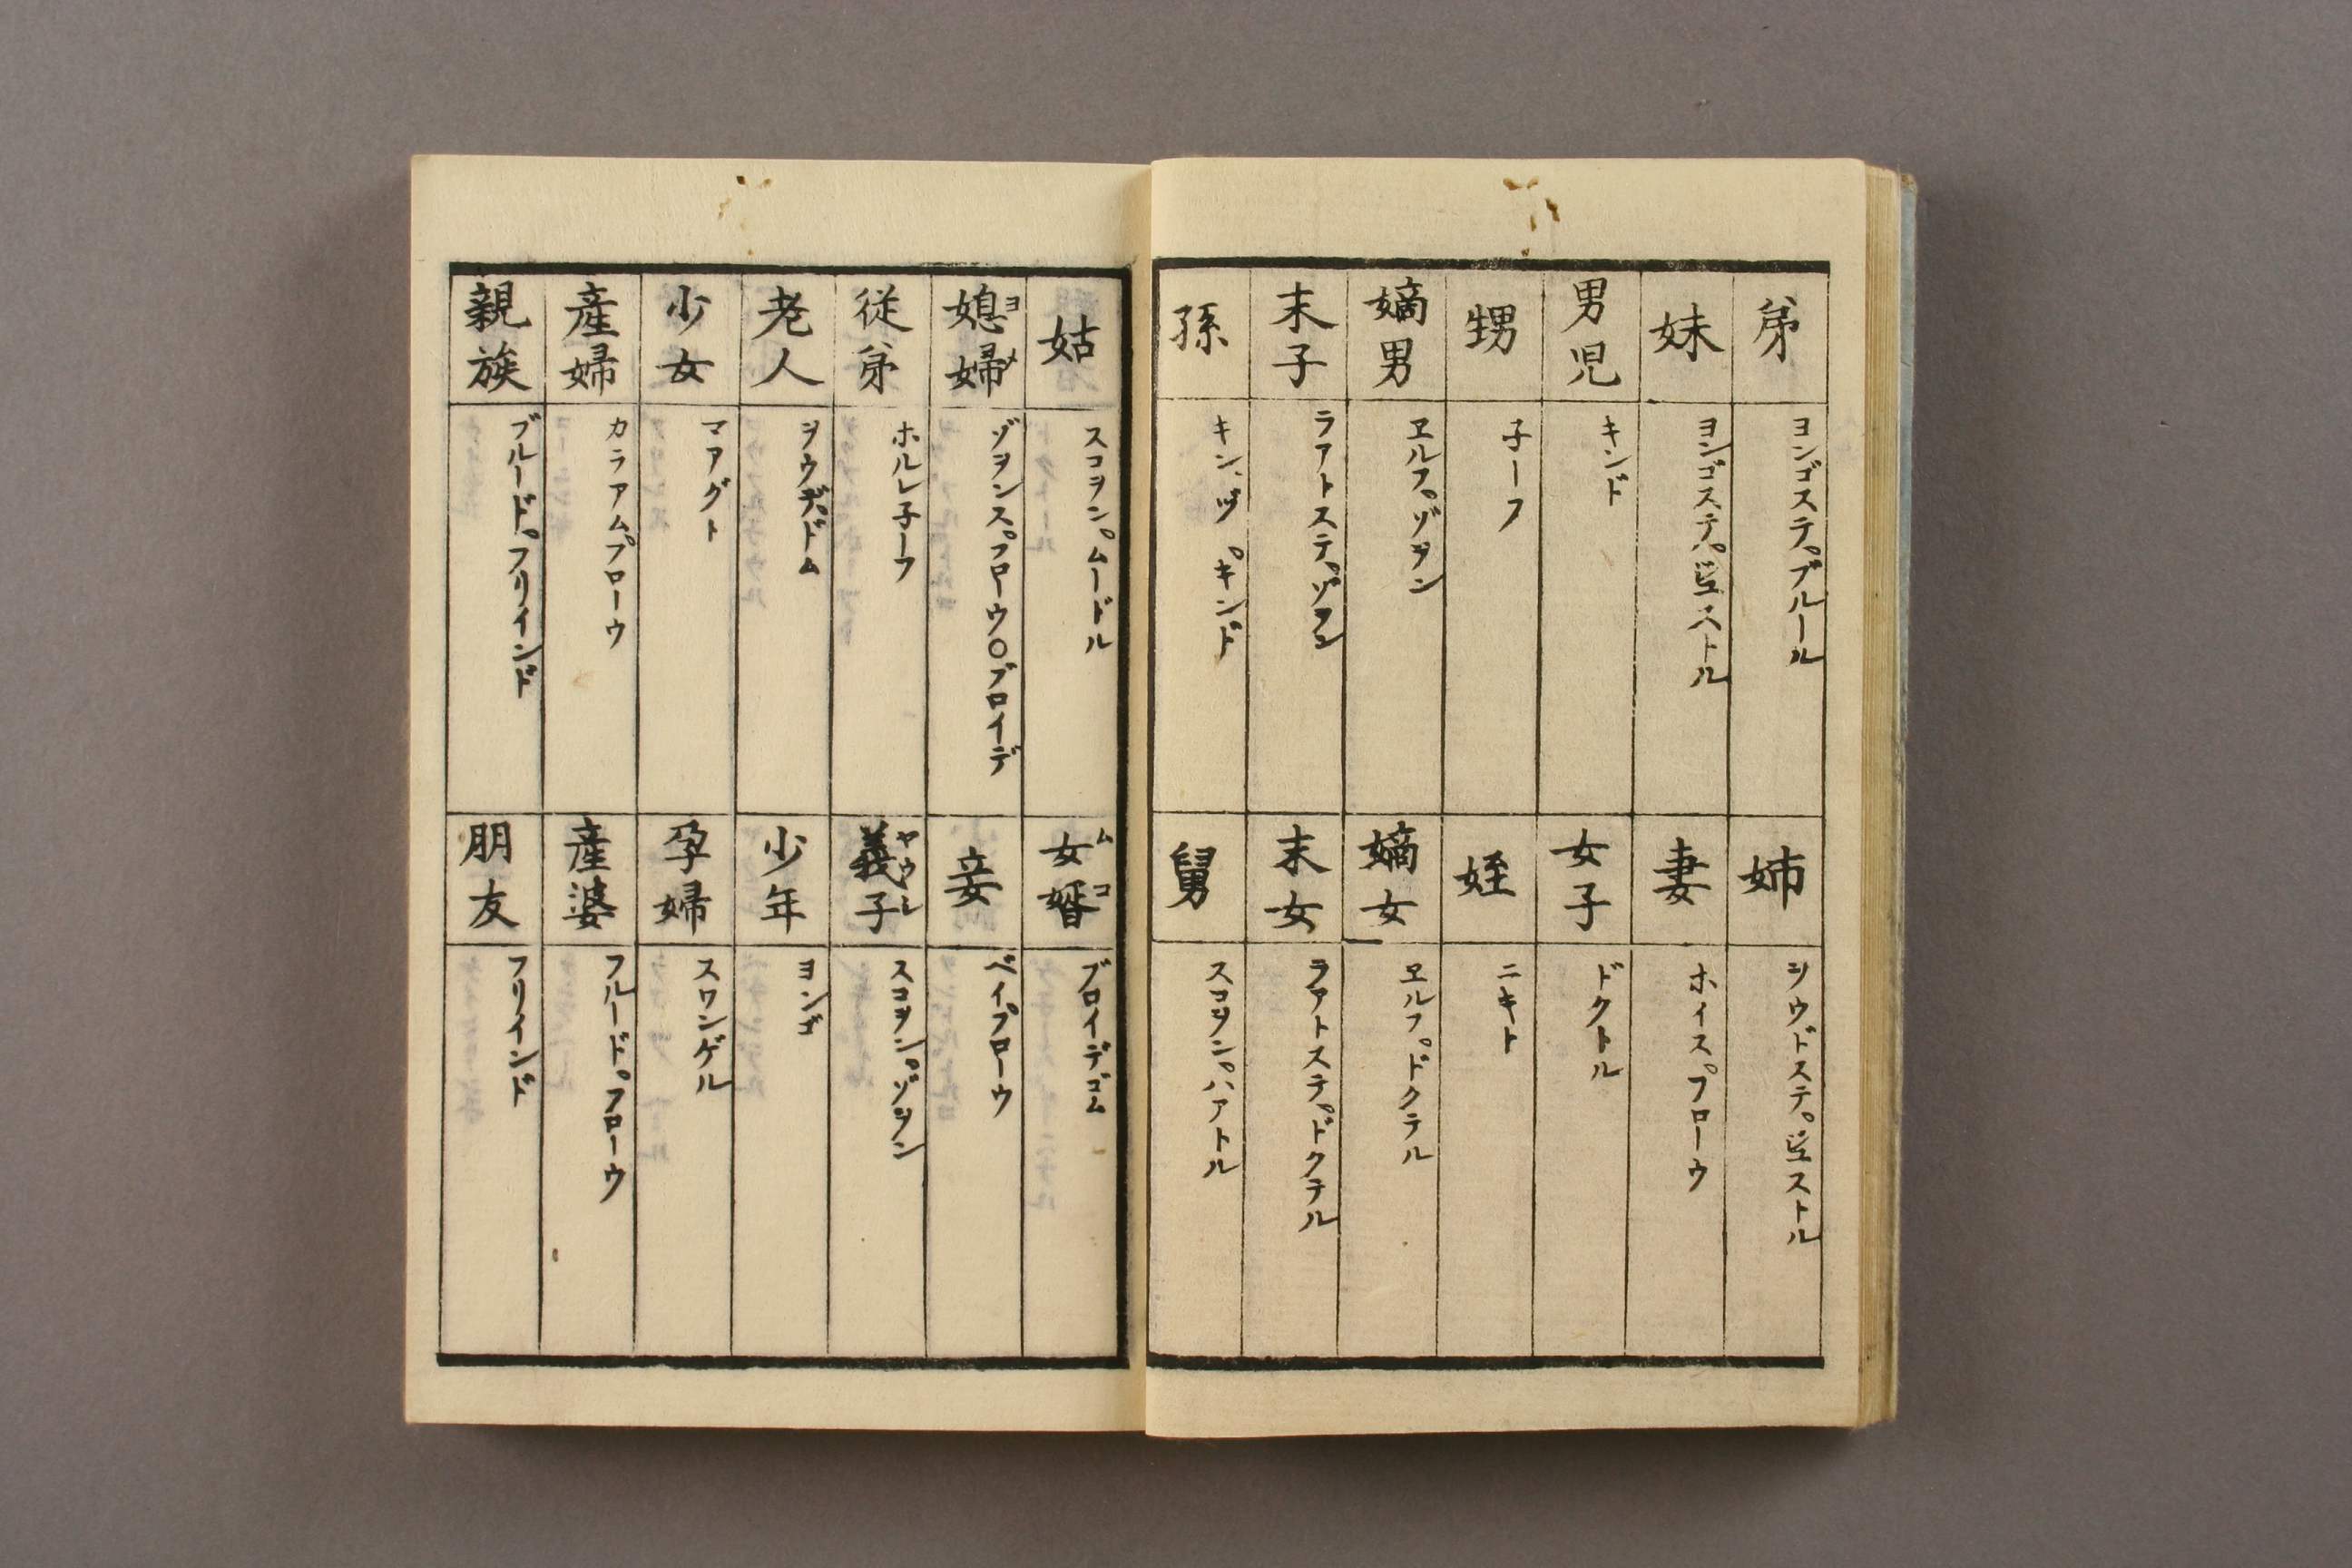 弟
ヨンゴステ゚ブルール
姉
ヲウドステ゚ヅヱストル
妹
ヨンゴステ゚ヅヱストル
妻
ホイス゚フローウ
男児
キンド
女子
ドクトル
甥
子ーフ
姪
ニキト
嫡男
ヱルプゾヲン
嫡女
ヱルプドクテル
末子
ラアトステ゚ゾヲン
末女
ラアトステ゚ドクテル
孫
キンヅ゚キンド
舅
スコヲン゚ハアトル
姑
スコヲン゚ムードル
女婿 ムコ
ブロイデゴム
媳婦 ヨメ
ゾヲンス゚フローウ〇ブロイデ
妾
ベイ゚フローウ
従弟
ホルレ子ーフ
義子 ヤウシ
スコヲン゚ゾヲン
老人
ヲウデ゚ドム
少年
ヨンゴ
少女
マアグト
孕婦
スワンゲル
産婦
カラアム゚フローウ
産婆
フルード゚フローウ
親族
ブルード゚フリインド
朋友
フリインド